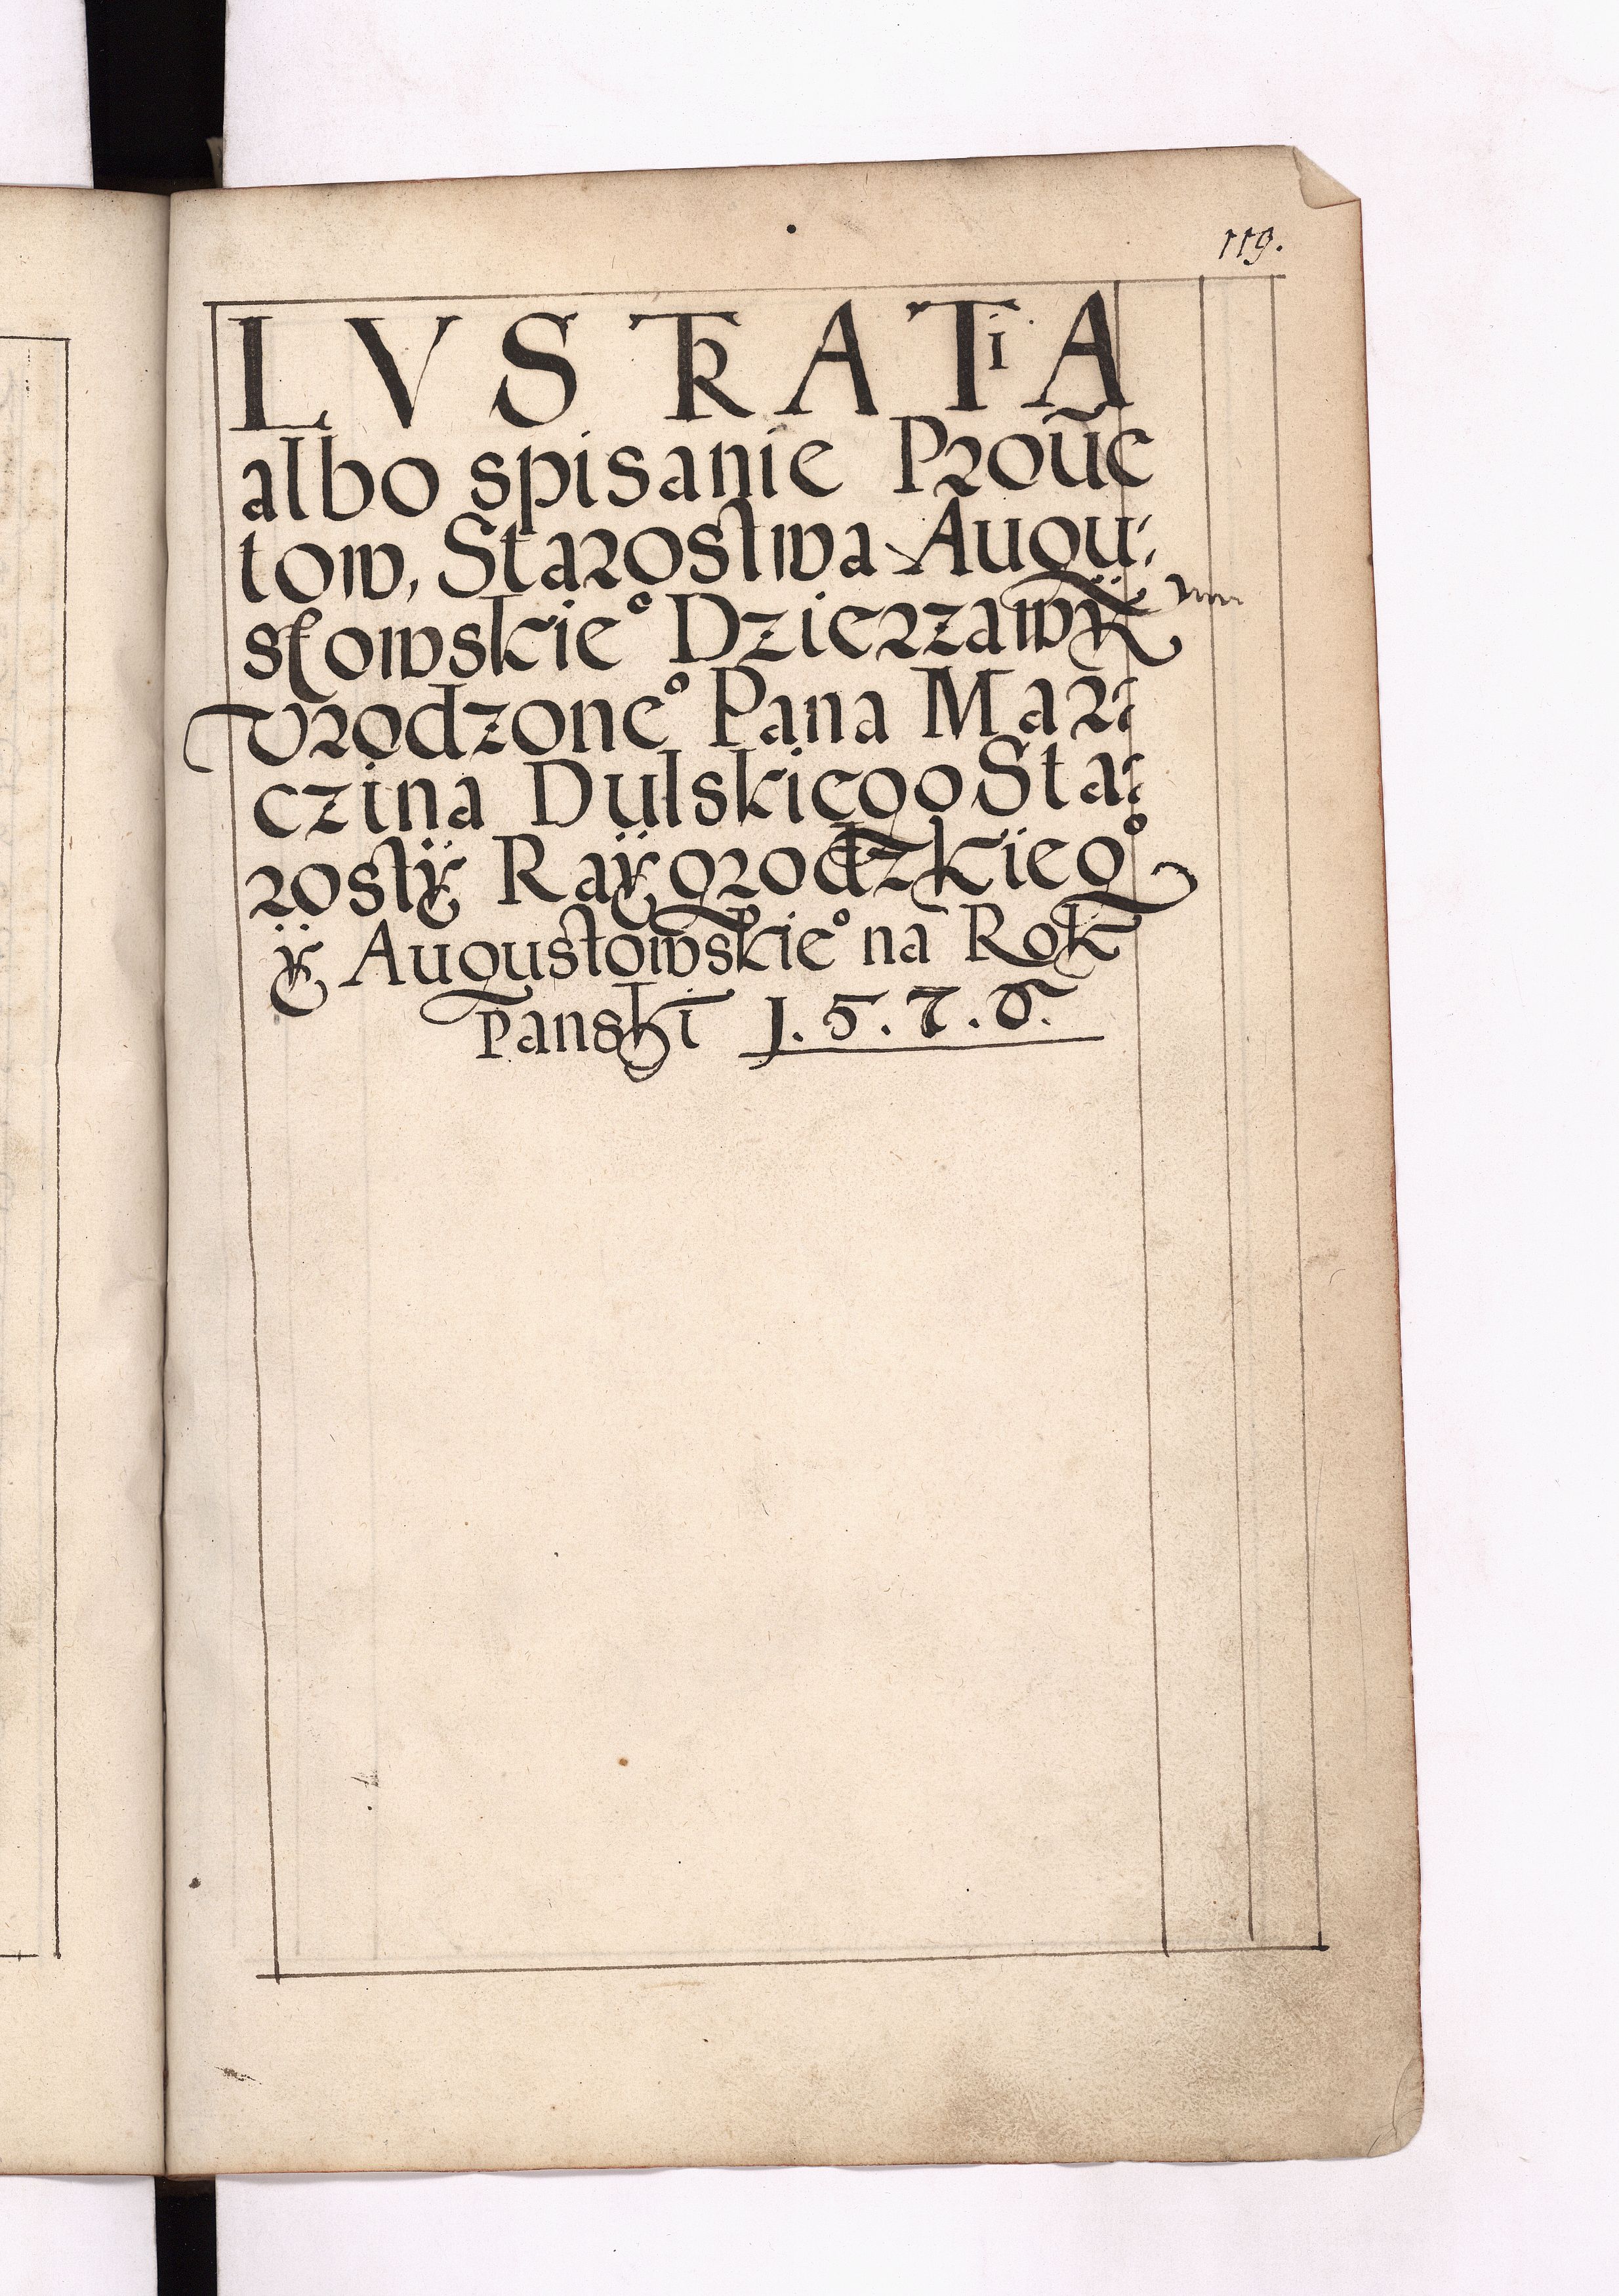 119.
LVSTRATiA
albo spisanie Prouē
tow, Starostwa Augu:
stowskieº Dzierzawÿ
Vrodzoneº Pana Mar:
czina Dulskiego Sta:
rostÿ Raÿgrodzkiegº
ÿ Augustowskieº na Rok
Panski 1.5.7.6.